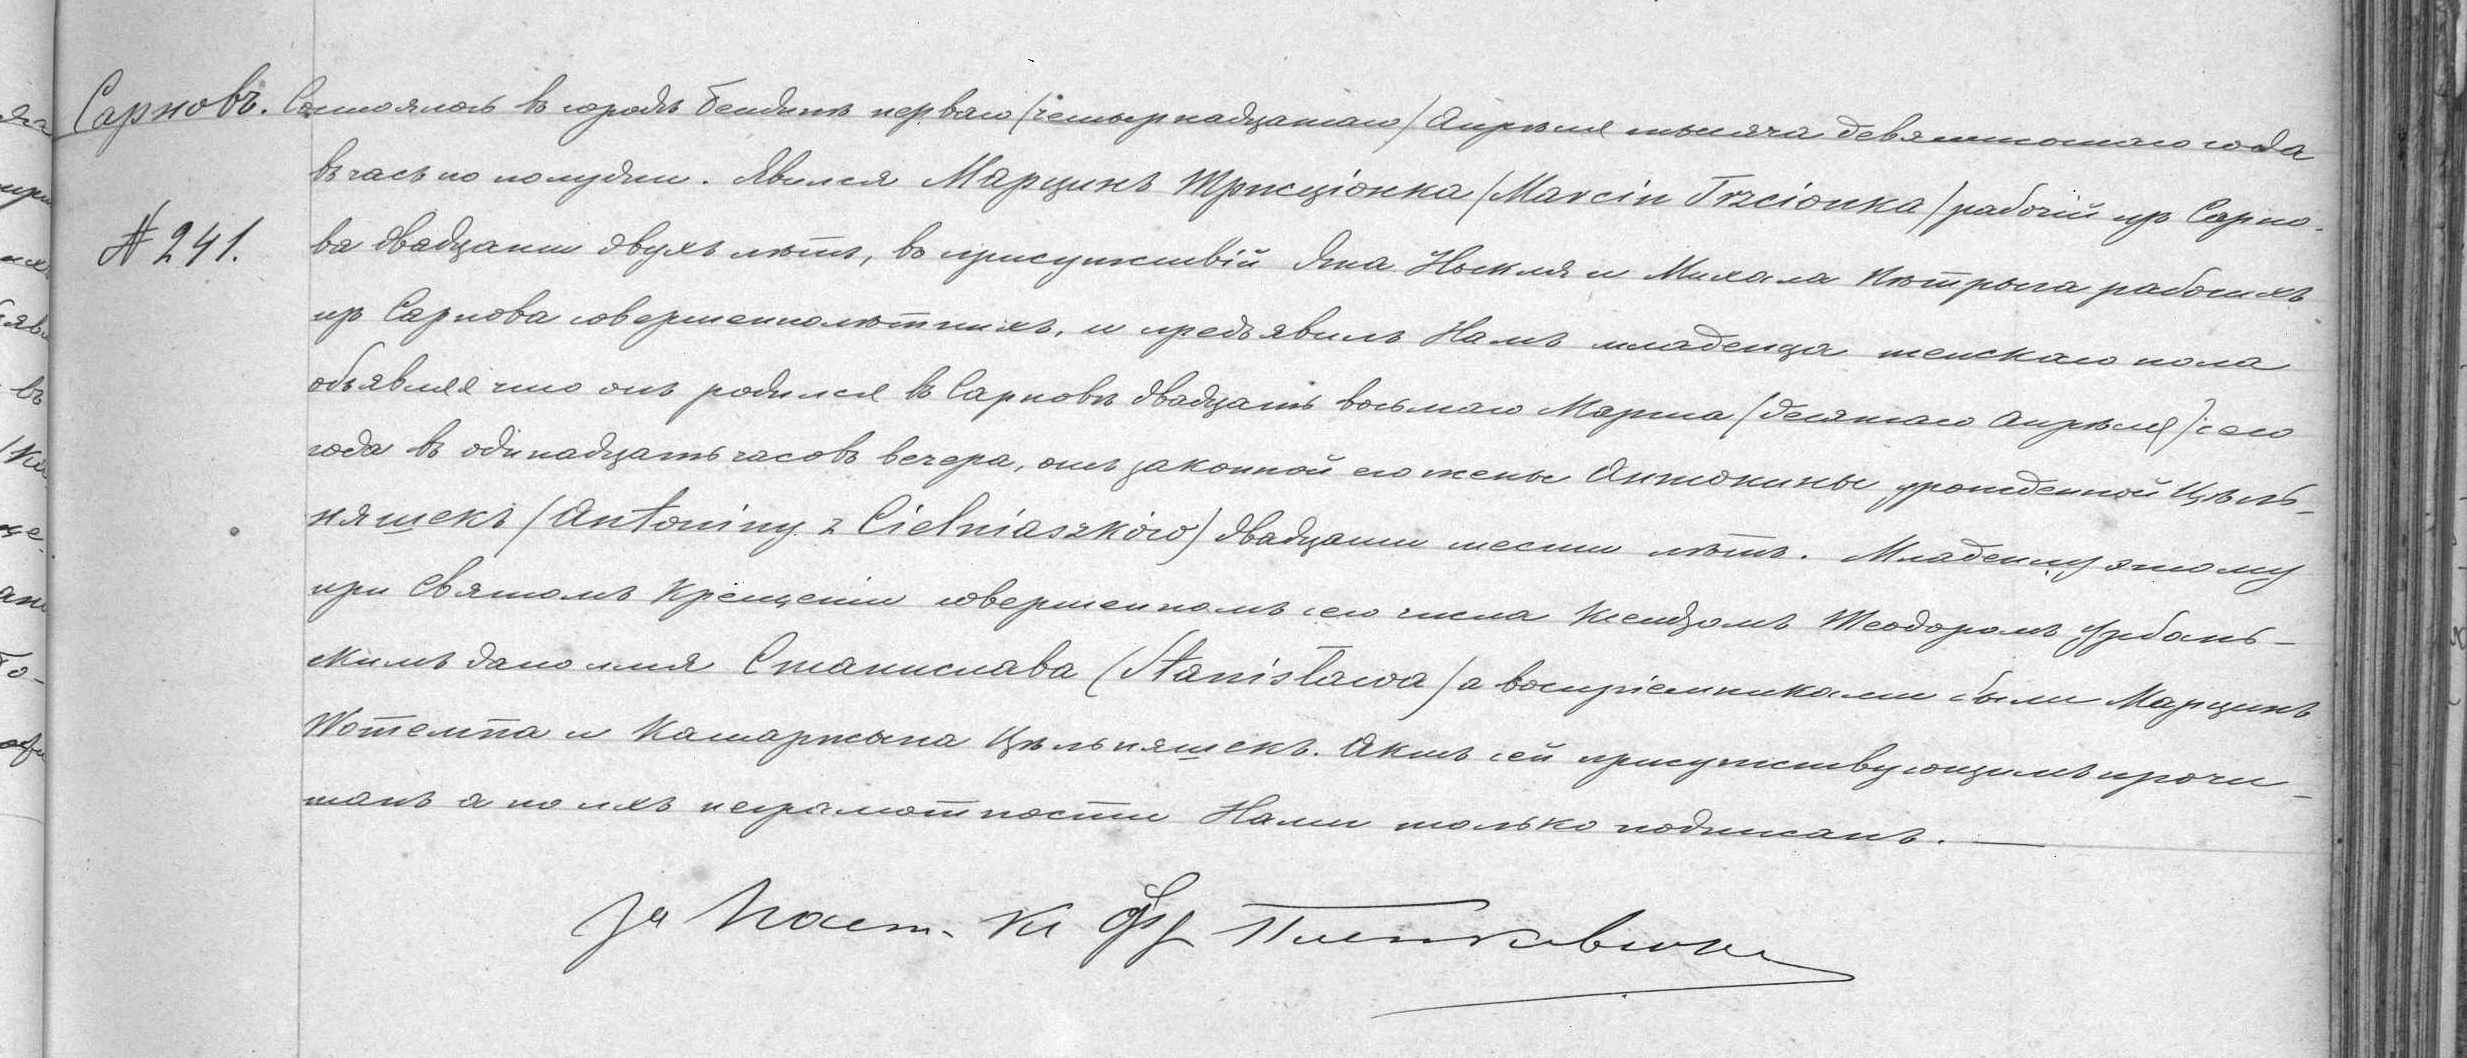 Сарновъ.
№ 241.
Состоялось въ городѣ Бендинѣ перваго /четырнадцатаго/ Апрѣля тысяча девятисотаго года
въ часъ по полудни. Явился Марцинъ Тржціонка /Marcin Trzcionka/ рабочій изъ Сарно-
ва двадцати двухъ лѣтъ, въ присутствіи Яна и Михала рабочихъ
изъ Сарнова совершеннолѣтнихъ, и предъявилъ Намъ младенца женскаго пола
объявляя что онъ родился въ Сарновѣ двадцать восьмаго Марта /десятаго Апрѣля/ сего
года въ одинадцать часовъ вечера, отъ законной его жены Антонины урожденной Цѣль-
няшекъ /Antoniny z Cielniaszków/ двадцати шести лѣтъ. Младенцу этому
при Святомъ Крещеніи совершенномъ сего числа Ксендзомъ Теодоромъ Урбань-
скимъ дано имя Станислава /Stanisława/ а воспріемниками были Марцинъ
и Катаржына Цѣльняшекъ. Актъ сей присутствующимъ прочи-
танъ а по ихъ неграмотности Нами только подписанъ.
За Наст. Кс